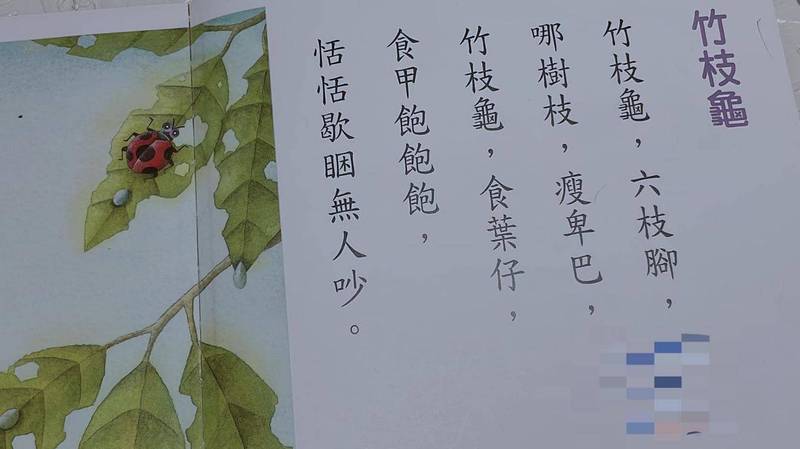 竹枝龜
竹枝龜，六枝腳，
哪樹枝，瘦卑巴，
竹枝龜，食葉仔，
食甲飽飽飽，
恬恬歇睏無人吵。